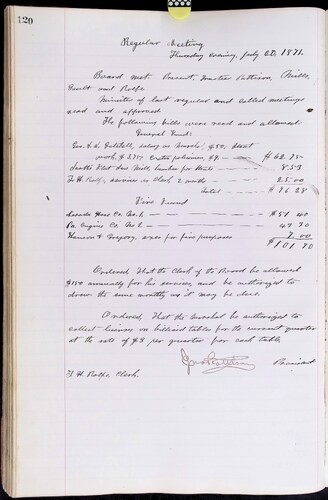 120
Regular Meeting
Thursday evening, July 20, 1871.
Board met. Present, Trustees Pattison, Mills,
and Rolfe.
Minutes of last regular and called meetings
read and approved.
The following bills were read and allowed:
General Fund:
salary as Marshal, $50; street
work, $ — $62.75
Lumber for streets — 8.53
F. H. Rolfe, services as Clerk 2 months — 25.00
Total — $96.28
Fire Fund
Hose Co. No. 1, — $51.40
Engine Co. No. 2, — 43.30
Gregory, axes for fire purposes 7.00
$101.70
Ordered, That the Clerk of the Board be allowed
$150 annually for his services, and be authorized to
draw the same monthly as it may be due.
Ordered, That the Marshal be authorized to
collect licenses on billiard tables for the current quarter
at the rate of $3 per quarter for each table.
President
F. H. Rolfe Clerk.